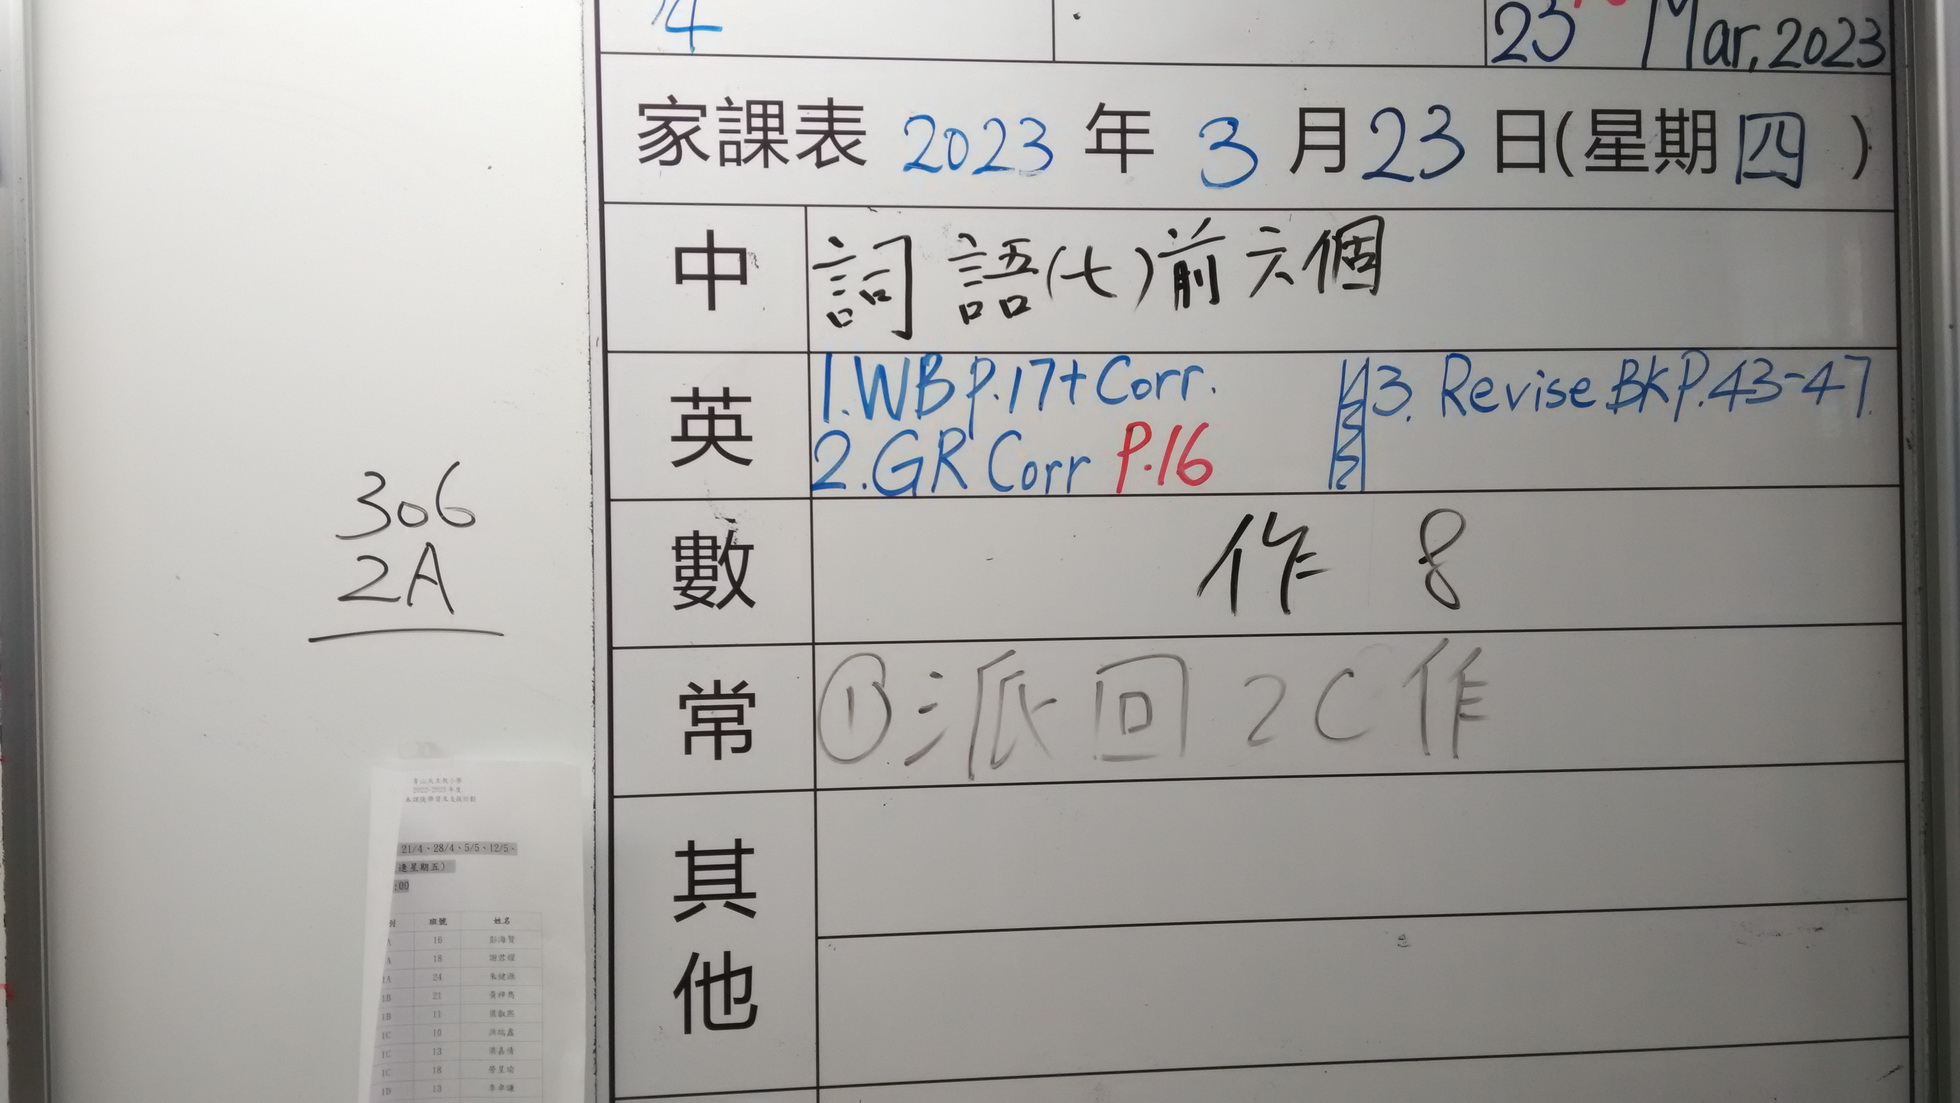 4
23 Mar, 2023
家課表 2023 年 3 月 23 日(星期四)
中 詞語(七)前六個
英 1. WB P.17 + Corr.
2. GR Corr P.16
3. Revise BK P.43-47
數 作 8
常 ① 派回 2C 作
其他
306
2A
2022-2023 年度
21/4、28/4、5/5、12/5、
逢星期五)
:00
班號 姓名
16
18
24
1B 21
1B 11
1C 10
1C 13
1C 18
1D 13